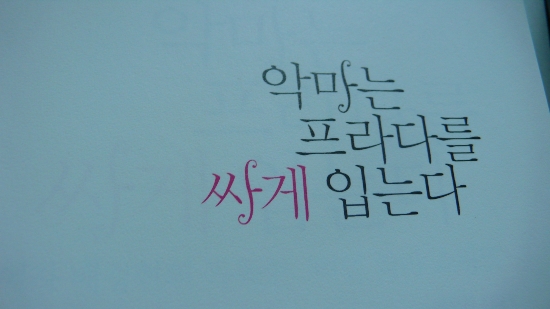 악마는
프라다를
싸게 입는다